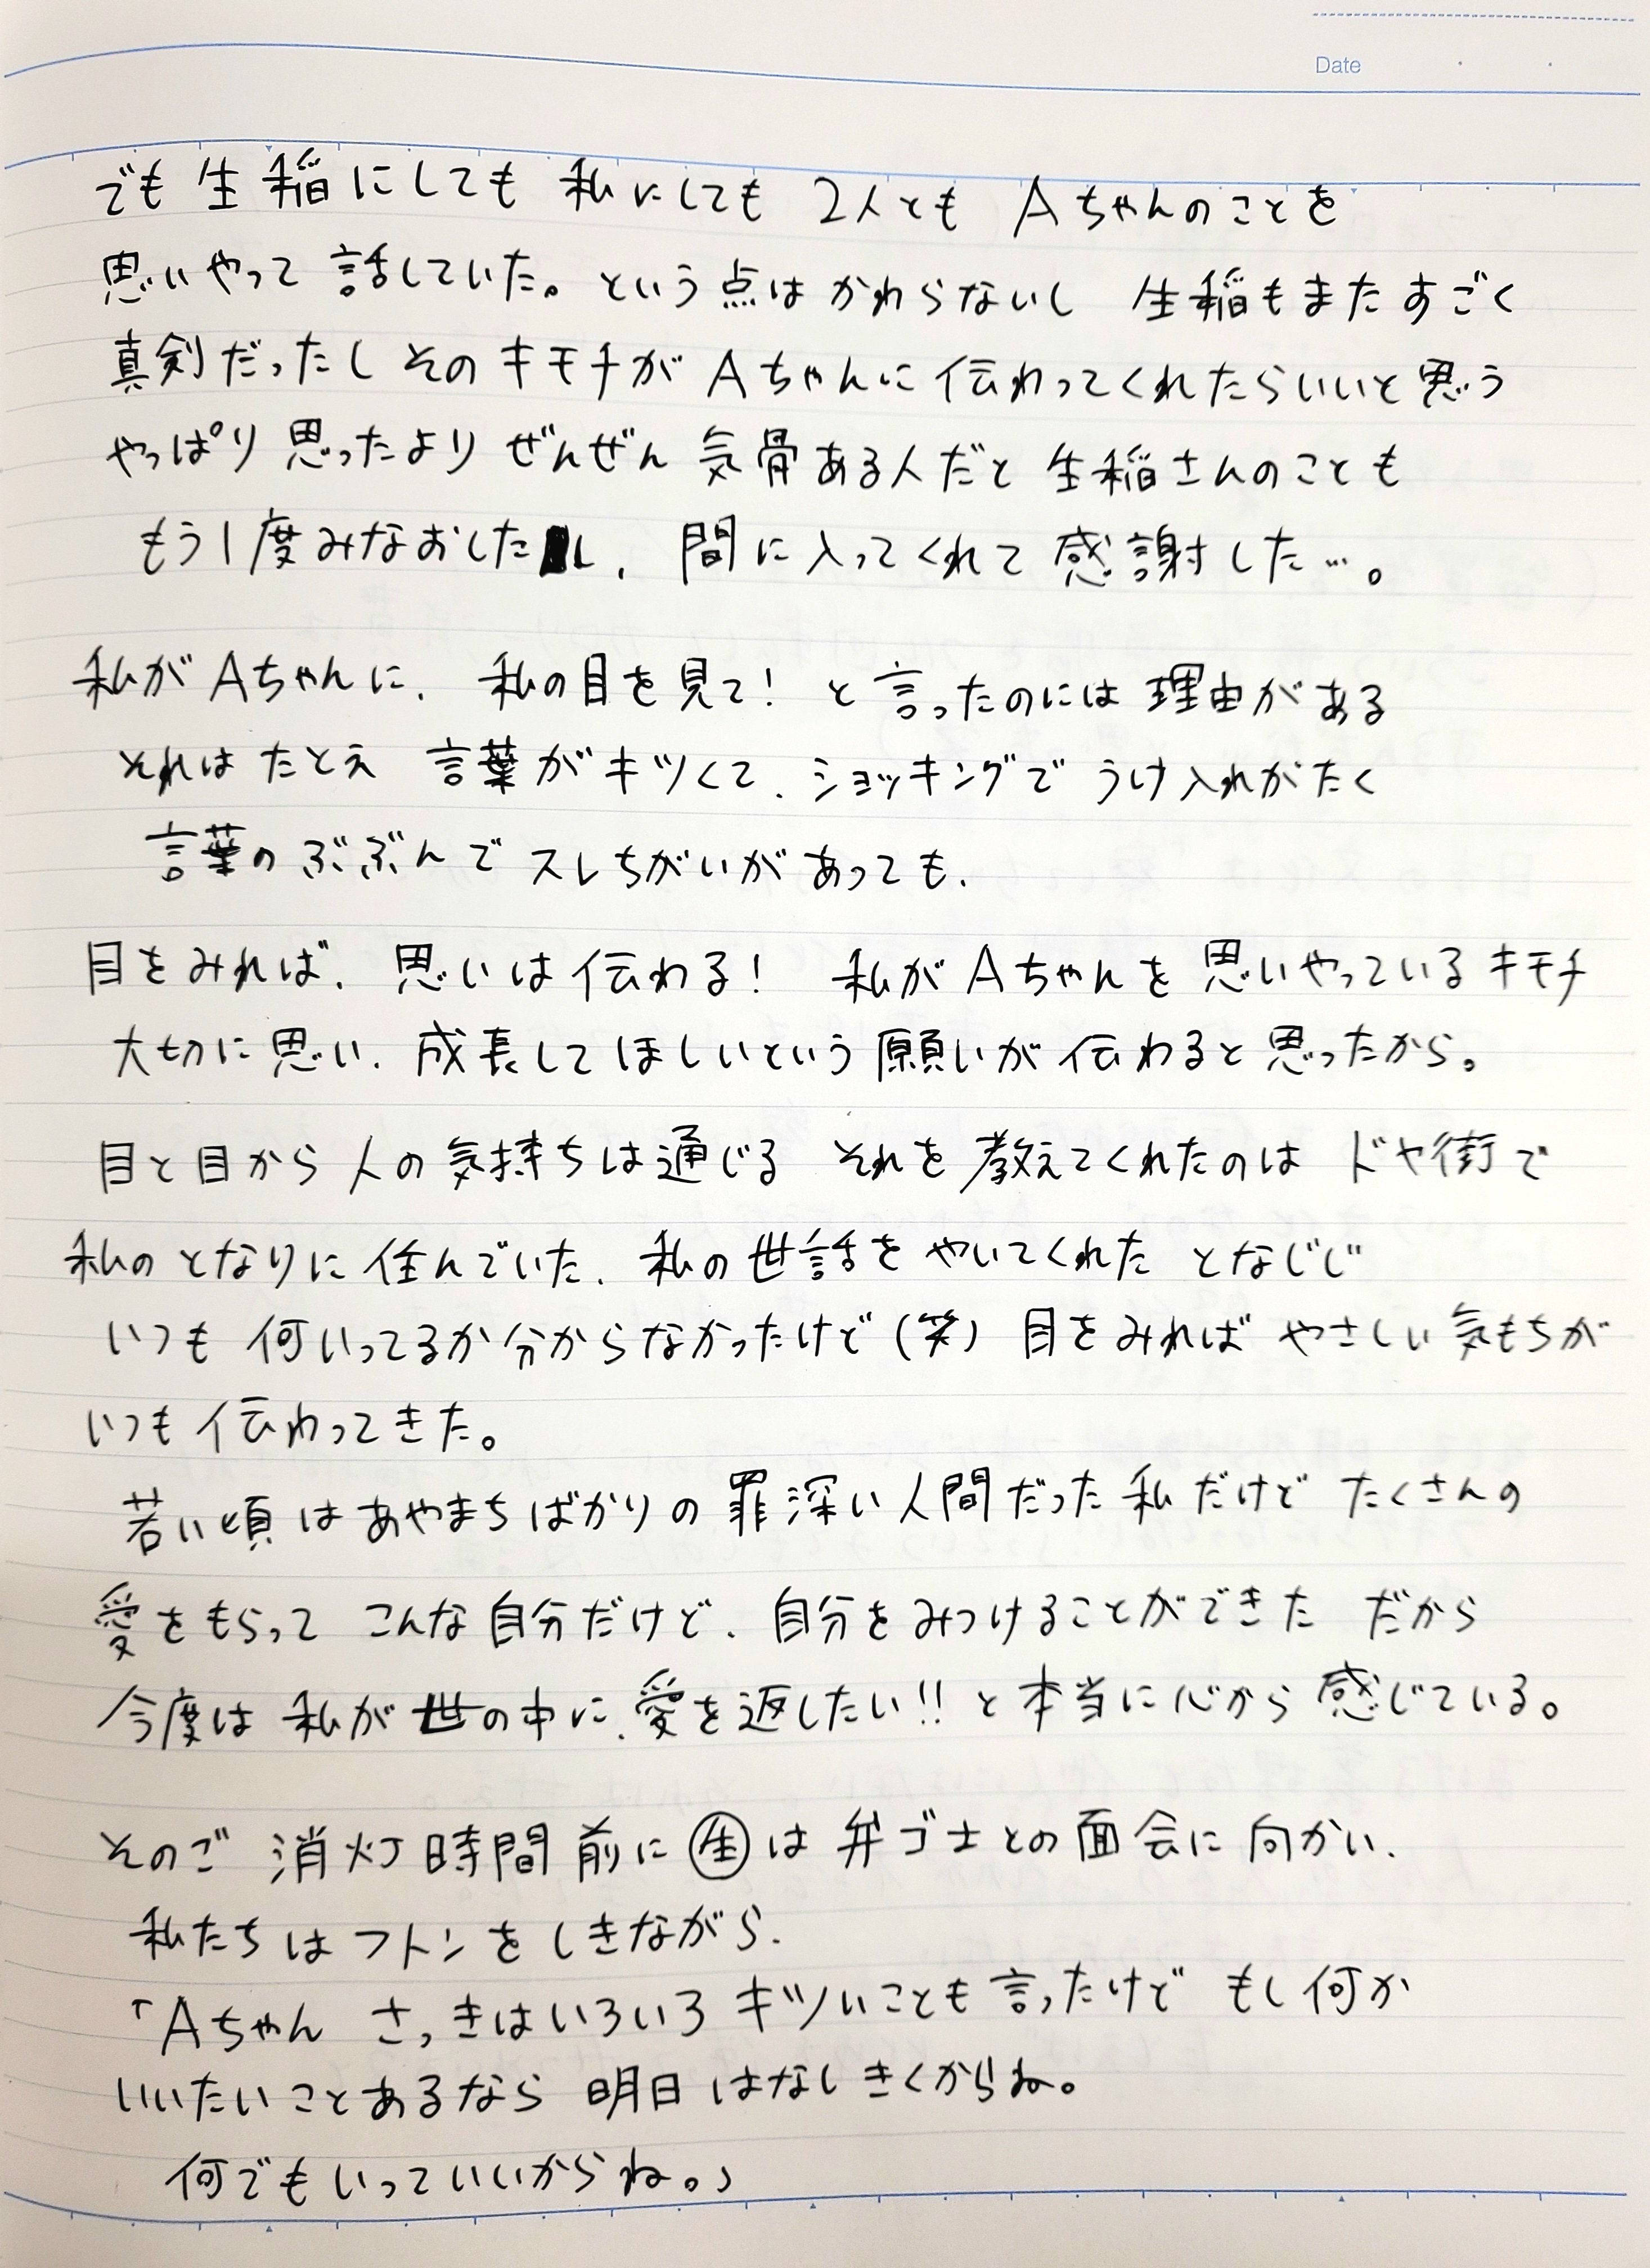 Date
でも生稲にしても 私にしても 2人とも Aちゃんのことを
思いやって 話していた。という点は かわらないし 生稲もまた すごく
真剣だったし そのキモチが Aちゃんに 伝わってくれたらいいと思う
やっぱり 思ったより ぜんぜん 気骨ある人だと 生稲さんのことも
もう1度みなおしたし、間に入ってくれて 感謝した…。
私が Aちゃんに、私の目を見て! と言ったのには 理由がある
それは たとえ 言葉がキツくて、ショッキングで うけ入れがたく
言葉の ぶぶんで スレちがいが あっても、
目をみれば、思いは伝わる! 私が Aちゃんを 思いやっているキモチ
大切に思い、成長して ほしいという 願いが 伝わると思ったから。
目と目から 人の気持ちは通じる それを 教えてくれたのは ドヤ街で
私の となりに 住んでいた、私の世話を やいてくれた となじじ
いつも 何いってるか分からなかったけど(笑) 目をみれば やさしい気もちが
いつも 伝わってきた。
若い頃は あやまちばかりの 罪深い人間だった 私だけど たくさんの
愛をもらって こんな自分だけど、自分をみつけることができた だから
今度は 私が 世の中に、愛を返したい!! と本当に心から 感じている。
そのご 消灯時間前に ㊤は 弁ゴ士との面会に 向かい、
私たちは フトンを しきながら、
「Aちゃん さっきは いろいろ キツいことも 言ったけど もし何か
いいたいこと あるなら 明日 はなし きくからね。
何でも いっていいからね。」